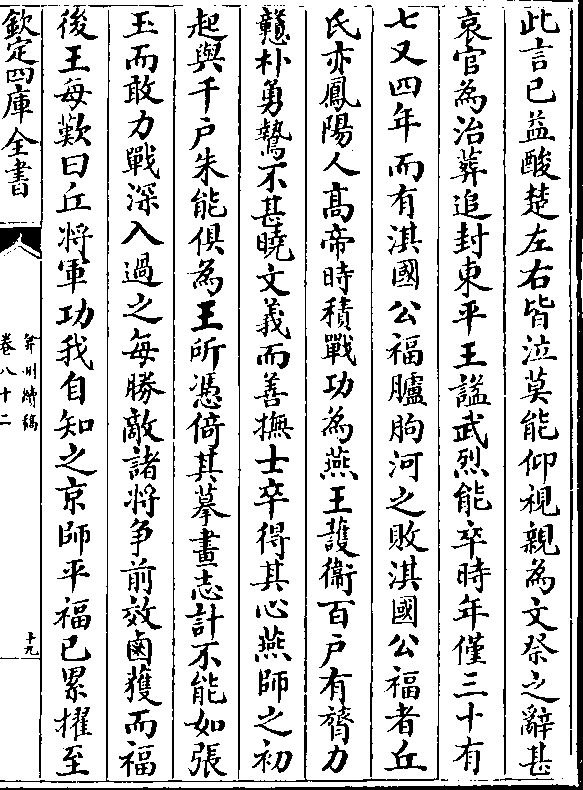 此言已益酸楚左右皆泣莫能仰視親為文祭之辭甚
哀官為治葬追封東平王謚武烈能卒時年僅三十有
七又四年而有淇國公福臚朐河之敗淇國公福者丘
氏亦鳳陽人髙帝時積戰功為燕王護衛百户有膂力
戇朴勇鷙不甚曉文義而善撫士卒得其心燕師之初
起與千户朱能俱為王所憑倚其摹畫志計不能如張
玉而敢力戰深入過之每勝敵諸將争前效鹵獲而福
後王每歎曰丘將軍功我自知之京師平福已累擢至
欽定四庫全書
弇州續稿
卷八十二
十九